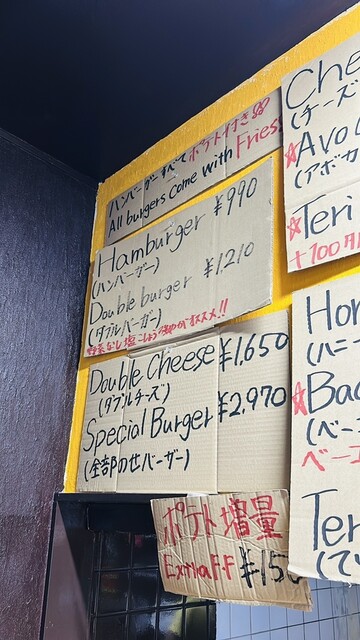 ハンバーガーすべてポテト付き
All burgers come with Fries!
Hamburger ¥990
(ハンバーガー)
Double burger ¥1,210
(ダブルバーガー)
野菜なし塩こしょうのみがオススメ!!
Double Cheese ¥1,650
(ダブルチーズ)
Special Burger ¥2,970
(全部のせバーガー)
ポテト増量
Extra F.F ¥150
Che
(チーズ
☆Avo
(アボカ
☆Teri
+100円
Hon
(ハニー
☆Bac
(ベー
ベーコ
Ter
(て